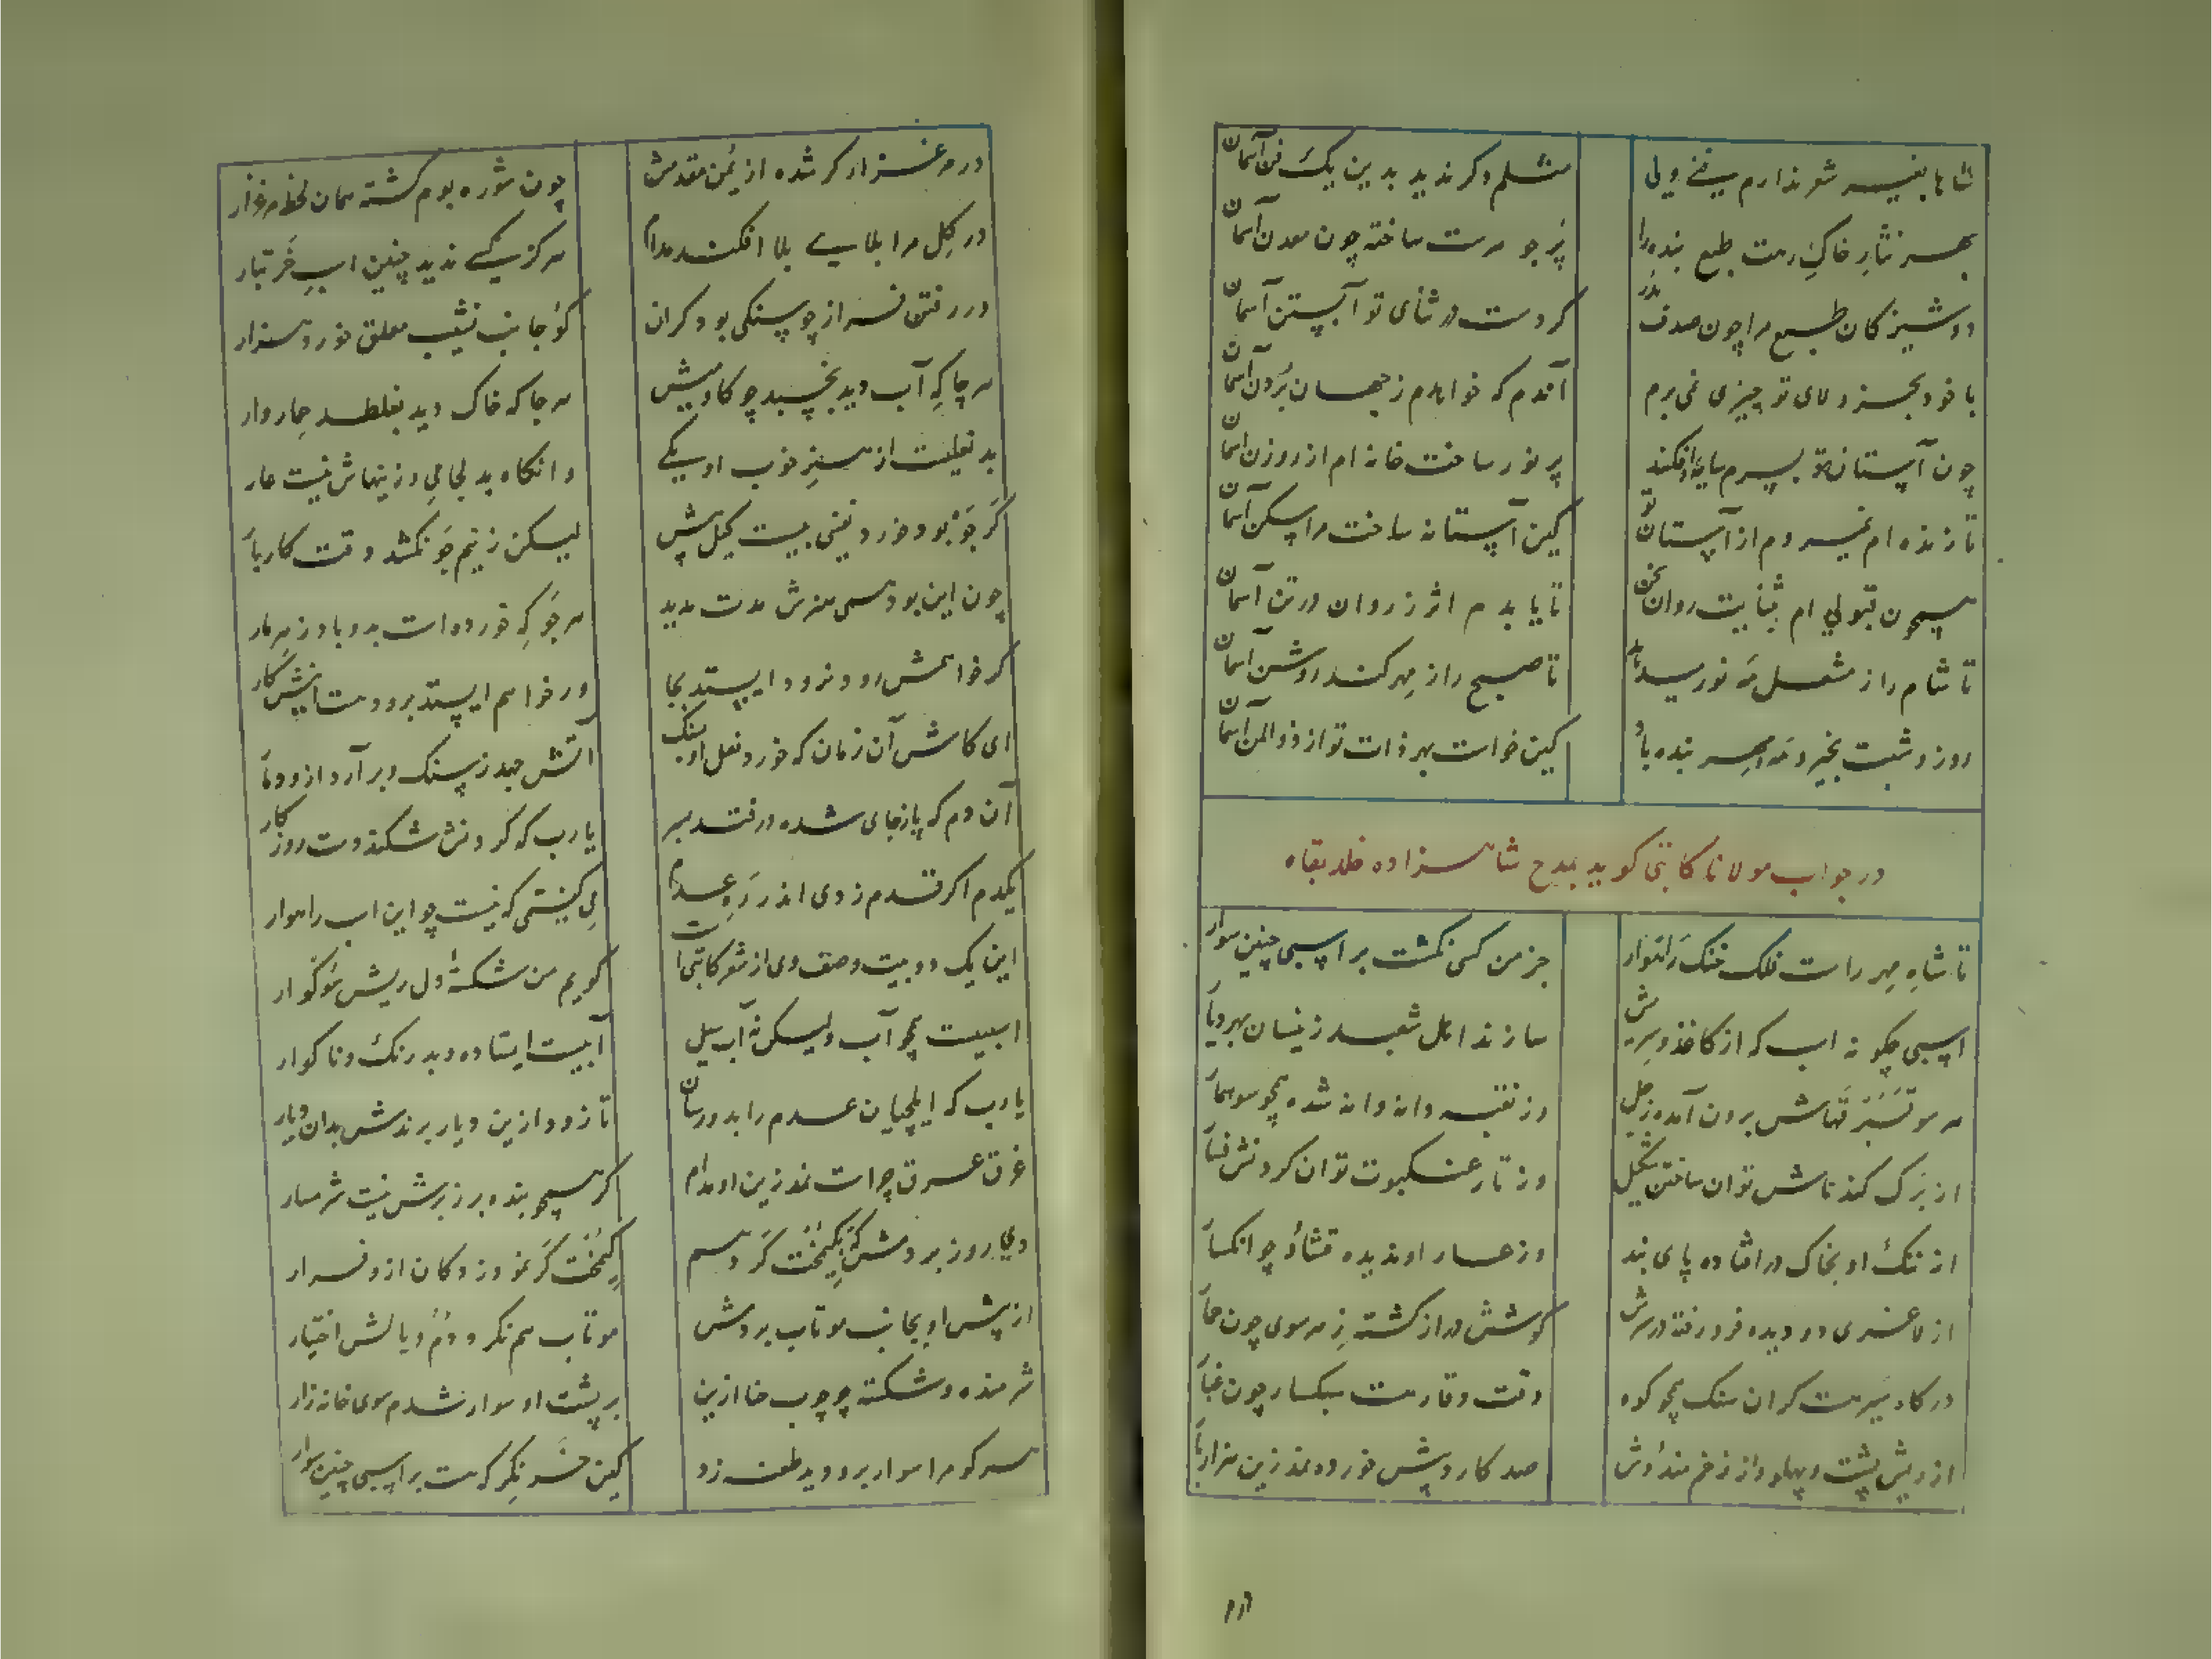 شاها بغیر شعر ندارم فنی ولی
مثلم دگر ندید بدین یک فن آسمان
بهر نثار خاک رهت طبع بنده را
پر جوهرست ساخته چون معدن آسمان
دوشیزگان طبع مرا چون صدف بدر
کردست در ثنای تو آبستن آسمان
با خود بجز ولای تو چیزی نمی برم
آندم که خواهدم ز جهان بردن آسمان
چون آستانۀ تو بسرم سایه افکند
پر نور ساخت خانه ام از روزن آسمان
تا زنده ام نمیروم از آستان تو
کین آستانه ساخت مرا مسکن آسمان
همچون قبولی ام بثنایت روان سخن
تا یابدم اثر ز روان در تن آسمان
تا شام را ز مشعل مه نور میدهد
تا صبح را ز مهر کند روشن آسمان
روز و شبت بخیر و مه و مهر بنده باد
کین خواست بهر ذات تو از ذوالمن آسمان
در جواب مولانا کاتبی گوید بمدح شاهزاده خلد بقاه
تا شاه مهر راست فلک خنگ راهوار
جز من کسی نگشت بر اسبی چنین سوار
اسبی چگونه اسب که از کاغذ و سریش
سازند اهل شعبده زینسان بهر دیار
هر سو ستخوانهاش برون آمده ز جل
وز نقبه دانه دانه شده همچو سوسمار
از برگ کند تاش توان ساختن شکیل
وز تار عنکبوت توان کردنش فسار
از تنگ او بخاک در افتاده پای بند
وز عسار او ندیده قشاؤ چو انکسار
از لاغری دو دیده فرو رفته در سرش
گوشش دراز گشته ز هر سوی چون حمار
در گاه سیر هست گران سنگ همچو کوه
وقت وقار هست سبکسار چون غبار
از ریش پشت و پهلو و از زخم مند و دش
صد کارد بیش خورده نمد زین هزار بار
در مرغزار گر شده از یمن مقدمش
چون شوره بوم گشته همان لحظه مرغزار
در گل مرا بلا سبی بلا افکند مدام
هرگز کسی ندید چنین اسب خر تبار
در رفتن فراز چو سنگی بود گران
گو جانب نشیب معلق خورد هزار
هر جا که آب دید بخسبد چو گاومیش
هر جا که خاک دید بغلطد حمار وار
بد نعلیست از هنر خوب او یکی
وانگاه بد لجامی و زینهاش نیست عار
گر جو بود خورد یعنی بیست کیل بیش
لیکن ز نیم جو نکشد وقت کار بار
چون این بود همی هنرش مدت مدید
هر جو که خورده است بدو باد زهر مار
گر خواهمش رود نرود وایستد بجا
ور خواهم ایستد برود هست اینش کار
ای کاش آن زمان که خورد نعل او بسنگ
آتش جهد ز سنگ و بر آرد ازو دمار
آن دم که پا ز جای شده در فتد بسر
یا رب که گردنش شکند دست روزگار
یکدم اگر قدم زدی اندر ره عدم
می گفتمی که نیست چو این اسب راهوار
این یک دو بیت وصف وی از شعر کاتبی است
گویم من شکستۀ دل ریش سوگوار
اسبیست همچو آب ولیکن نه آب سیل
آبیست ایستاده و بدرنگ و ناگوار
یا رب که ایلچیان عدم را بدو رسان
تا زود ازین دیار برندش بدان دیار
غرق عرق چراست نمد زین او مدام
گر همچو بنده بر ز برش نیست شرمسار
دی روز بردمش که بکیمخت گر دهم
کیمخت گر نمود ز دکان ازو فرار
از پیش او بجانب موتاب بردمش
موتاب هم نکرد دم و یالش اختیار
شرمنده و شکسته چو چوب خا ازین
بر پشت او سوار شدم سوی خانه زار
هر کو مرا سوار برو دید طعنه زد
کین خر نگر که هست بر اسبی چنین سوار